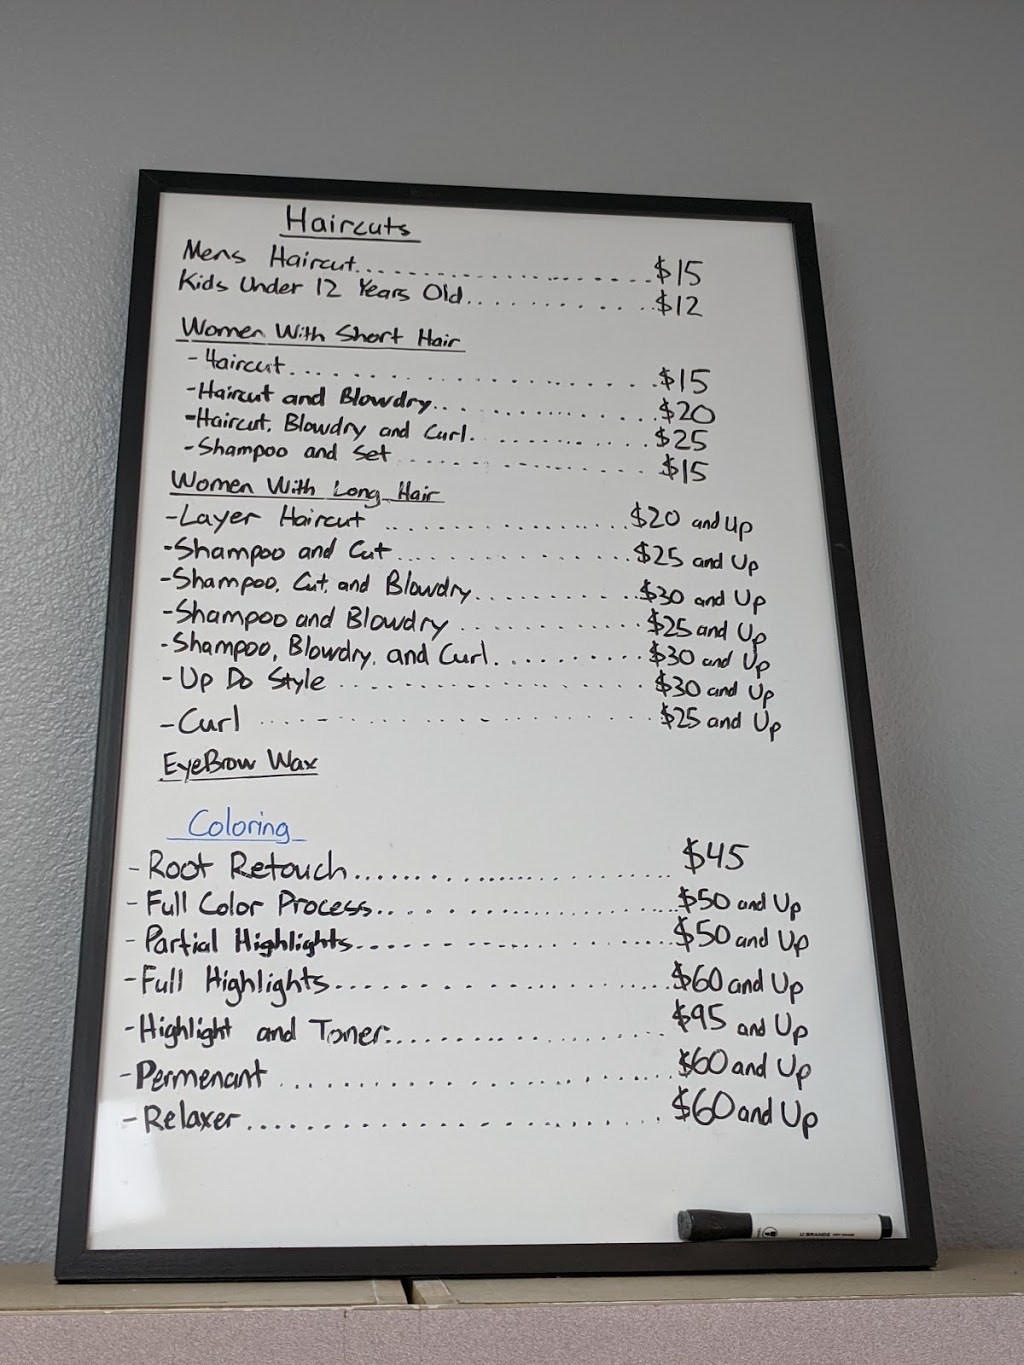 Haircuts
Mens Haircut..................$15
Kids Under 12 Years Old............$12
Women With Short Hair
-Haircut..................$15
-Haircut and Blowdry..............$20
-Haircut, Blowdry and Curl............$25
-Shampoo and Set..............$15
Women With Long Hair
-Layer Haircut..............$20 and up
-Shampoo and Cut..............$25 and Up
-Shampoo, Cut, and Blowdry..........$30 and Up
-Shampoo and Blowdry............$25 and Up
-Shampoo, Blowdry, and Curl..........$30 and Up
-Up Do Style................$30 and Up
-Curl..................$25 and Up
EyeBrow Wax
Coloring
-Root Retouch..................$45
-Full Color Process................$50 and Up
-Partial Highlights................$50 and Up
-Full Highlights................$60 and Up
-Highlight and Toner..............$95 and Up
-Permenant..................$60 and Up
-Relaxer..................$60 and Up
U BRANDS